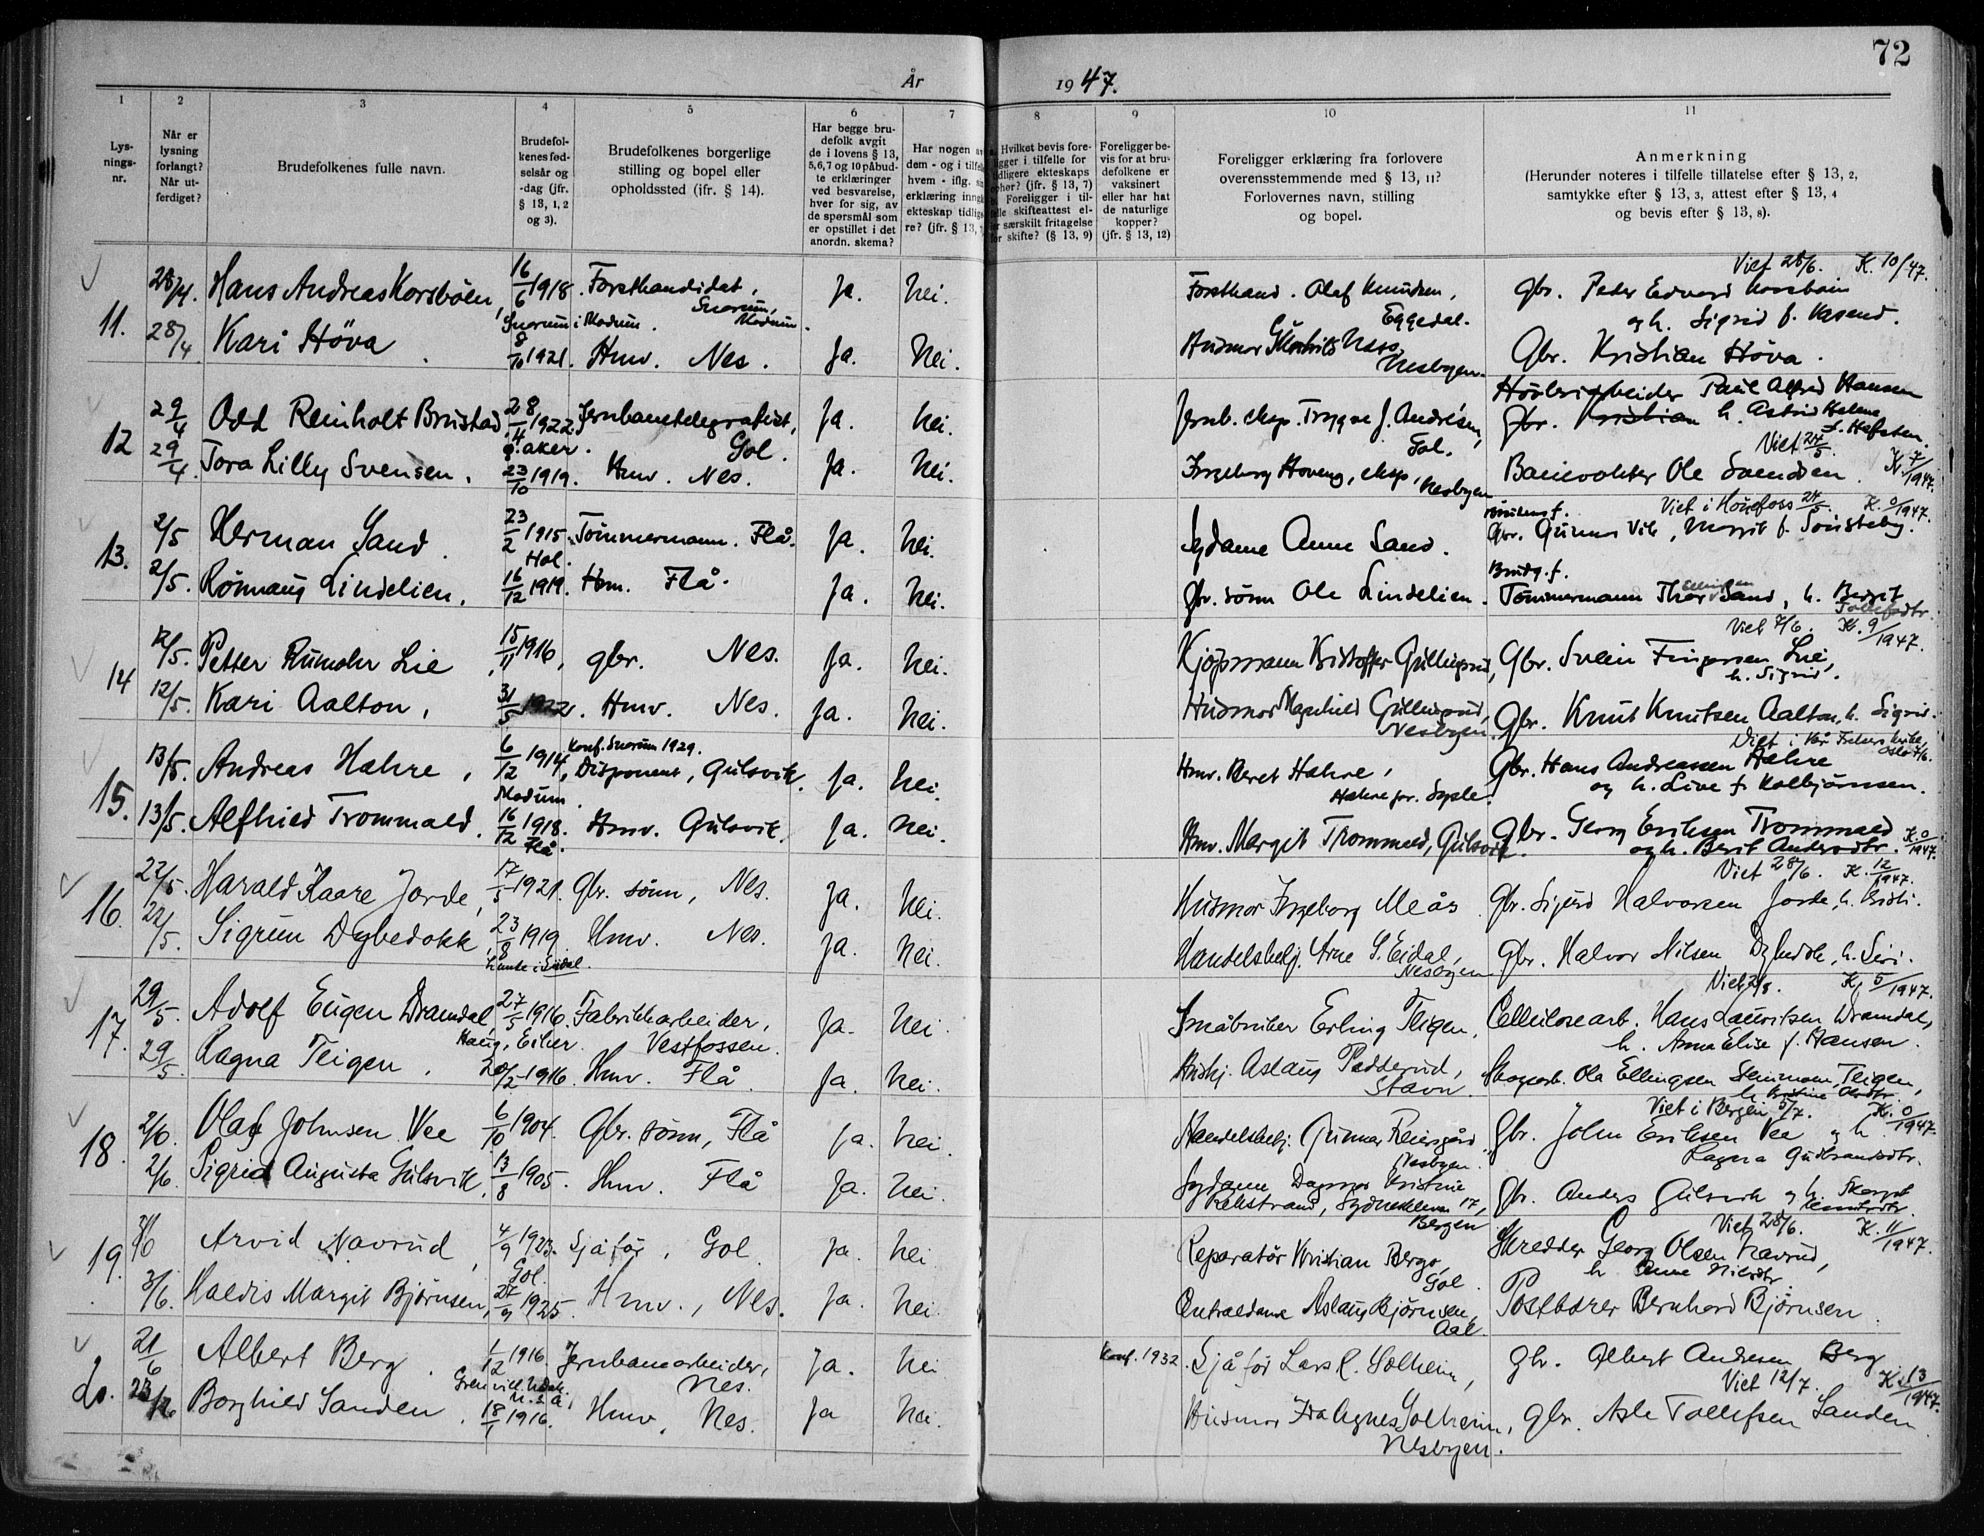 72
År 1947.
1
2
3
4
5
6
7
8
9
10
11
Lys-
nings-
nr.
Når er
lysning
forlangt?
Når ut-
ferdiget?
Brudefolkenes fulle navn.
Brudefol-
kenes fød-
selsår og
-dag (jfr.
§ 13, 1, 2
og 3).
Brudefolkenes borgerlige
stilling og bopel eller
opholdssted (jfr. § 14).
Har begge bru-
defolk avgit
de i lovens § 13,
5,6,7 og 10 påbud-
te erklæringer
ved besvarelse,
hver for sig, av
de spørsmål som
er opstillet i det
anordn. skema?
Har nogen av
dem - og i tilfelle
hvem - iflg. sin
erklæring inngå
ekteskap tidlige
re? (jfr. § 13,
Hvilket bevis fore-
ligger i tilfelle for
tidligere ekteskaps
ophør? (jfr. § 13, 7)
Foreligger i til-
felle skifteattest el-
ler særskilt fritagelse
for skifte? (§ 13, 9)
Foreligger be-
vis for at bru-
defolkene er
vaksinert
eller har hat
de naturlige
kopper?
(jfr. § 13, 12)
Foreligger erklæring fra forlovere
overensstemmende med § 13, 11?
Forlovernes navn, stilling
og bopel.
Anmerkning
(Herunder noteres i tilfelle tillatelse efter § 13, 2,
samtykke efter § 13, 3, attest efter § 13, 4
og bevis efter § 13, 8).
Viet 28/6. K. 10/47.
11. 28/4. Hans Andreas Korsbøen, 16/6 1918. Forstkandidat, Snarum, Modum. Ja. Nei. Forstkand. Olaf Knudsen, Eggedal. Gbr. Peder Edvard Korsbøen
Snarum i Modum. og h. Sigrid f. Vasend.
28/4 Kari Höva. 8/10 1921. Hmv. Nes. Ja. Nei. Husmor Gunhild Næss, Nesbyen. Gbr. Kristian Höva.
12 29/4 Odd Reinholt Brustad 28/4 1922. Jernbanetelegrafist, Gol. Ja. Nei. Jernb. eksp. Trygve J. Andrésen, Gol. Paul Alfred Hansen
Aker. Gbr. Kristian h. Astrid Helene
f. Hafsten.
Viet 24/5. K. 7/1947.
29/4 Tora Lilly Svensen. 23/10 1919. Hmv. Nes. Ja. Nei. Ingeborg Hoveng, eksp, Nesbyen Banevokter Ole Svendsen
Viet i Hönefoss 24/5. K. 0/1947.
13. 2/5 Herman Sand. 23/2 1915. Tømmermann. Flå. Ja. Nei. Sydame Anne Sand. Gbr. Gunnar Vik, Margit f. Sönsteby.
Hol.
Brudg. f.
2/5. Rönnaug Lindelien. 16/12 1919. Hm. Flå. Ja. Nei. Gbr. sönn Ole Lindelien. Tömmermann Thor Ellingsen Sand, h. Bergit
Tollefsdtr.
Viet 7/6. K. 9/1947.
14 12/5. Petter Rumohr Lie 15/11 1916, gbr. Nes. Ja. Nei. Kjøpmann Kristoffer Gullingsrud, Gbr. Svein Fingarsen Lie,
h. Sigrid.
12/5. Kari Aalton, 31/5 1922. Hmv. Nes. Ja. Nei. Husmor Magnhild Gullingsrud, Nesbyen. Gbr. Knut Knutsen Aalton, h. Sigrid.
Viet i Vår Frelsers kirke, Oslo 7/6.
15. 13/5. Andreas Hahre, 6/12 1914, Konf. Snarum 1929. Disponent, Gulsvik. Ja. Nei. Hmv. Beret Hahre, Gbr. Hans Andreassen Hahre
Modum. og h. Live f. Kolbjörnsen.
13/5. Alfhild Trommald. 16/12 1918. Hmv. Gulsvik. Ja. Nei. Hmv. Margit Trommald, Gulsvik. Gbr. Georg Eriksen Trommald
Flå og h. Berit Andersdtr. K. 0/1947.
Viet 28/6. K. 12/1947.
16. 22/5. Harald Kaare Jorde, 17/5 1921. Gbr. sønn, Nes. Ja. Nei. Husmor Ingeborg Meås. Gbr. Sigurd Halvorsen Jorde, h. Kristi.
22/5. Sigrun Dybedokk, 23/8 1919 Hmv. Nes. Ja. Nei. Handelsbetj. Arne S. Eidal, Nesbyen Gbr. Halvor Nilsen Dybedokk, h. Siri.
Viet 2/8. K. 5/1947.
17. 29/5. Adolf Eugen Dramdal 27/5 1916. Fabrikkarbeider, Vestfossen. Ja. Nei. Småbruker Erling Teigen, Cellulosearb. Hans Lauritsen Dramdal,
Haug, Eiker. h. Anna Elise f. Hansen.
29/5 Ragna Teigen. 20/2 1916. Hmv. Flå. Ja. Nei. Hushj. Aslaug Padderud, Stavn. Skogsarb. Ola Ellingsen Teigen,
h. Kristine Olsdtr.
Viet i Bergen 5/7. K. 0/1947.
18. 2/6. Olaf Johnsen Vee 6/10 1904. Gbr. sønn, Flå Ja. Nei. Handelsbetj. Gunnar Reiersgård Nesbyen. Gbr. John Eriksen Vee og h.
Ragna Gudbrandsdtr.
2/6. Sigrid Augusta Gulsvik, 13/8 1905. Hmv. Flå Ja. Nei. Sydame Dagmar Kristine Rekstrand, Sydneskleven 17, Bergen Gbr. Anders Gulsvik og h.
Viet 28/6. K. 11/1947.
19. 3/6 Arvid Navrud, 4/9 1923. Sjåför, Gol Ja. Nei Reparatör Kristian Berge, Gol. Skredder Georg Olsen Navrud,
Gol. h. Anne Nilsdtr.
3/6. Haldis Margit Bjørnsen, 27/9 1925. Hmv., Nes. Ja. Nei. Centraldame Aslaug Bjørnsen, Aal. Postbærer Bernhard Bjørnsen
do. 21/6 Albert Berg. 1/12 1916. Jernbanearbeider, Nes. Ja. Nei Konf. 1932. Sjåför Lars R. Solheim, Gbr. Albert Andresen Berg
U.S.A. Viet 12/7. K. 13/1947.
23/6 Borghild Sanden. 18/1 1916. Hmv, Nes. Ja Nei. Husmor Agnes Solheim, Nesbyen. Gbr. Asle Tollefsen Sanden